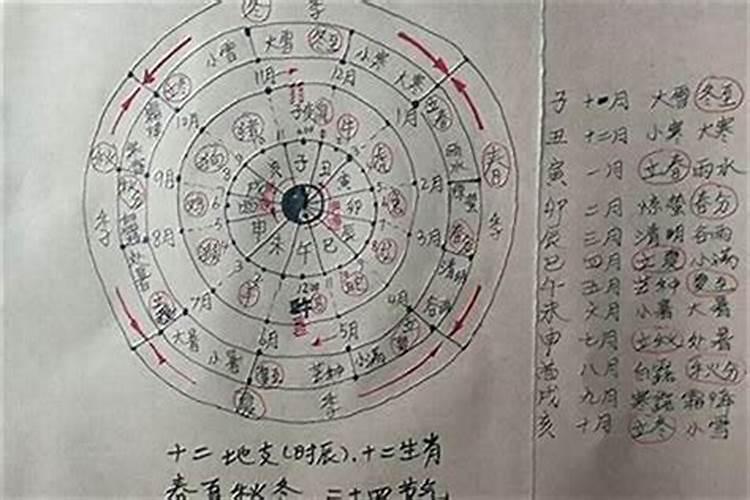 冬 季
小雪 大雪 冬至 小寒 大寒
立冬 11月 12月 立春
10月 1月 雨水
子 鼠 牛 虎 猪 狗
秋 季 春 季
9月 2月 惊蛰
亥 子 丑 寅 卯 辰 巳 午 未 申 酉 戌
秋分 8月 3月 春分
清明
7月 4月 谷雨
立秋 大暑 小暑 6月 5月 小满 立夏
夏至 芒种
夏 季
子 十一月 大雪 冬至
丑 十二月 小寒 大寒
寅 一月 立春 雨水
卯 二月 惊蛰 春分
辰 三月 清明 谷雨
巳 四月 立夏 小满
午 五月 芒种 夏至
未 六月 小暑 大暑
申 七月 立秋 处暑
酉 八月 白露 秋分
戌 九月 寒露 霜降
亥 十月 立冬 小雪
十二地支(时辰).十二生肖
春夏秋冬 二十四节气